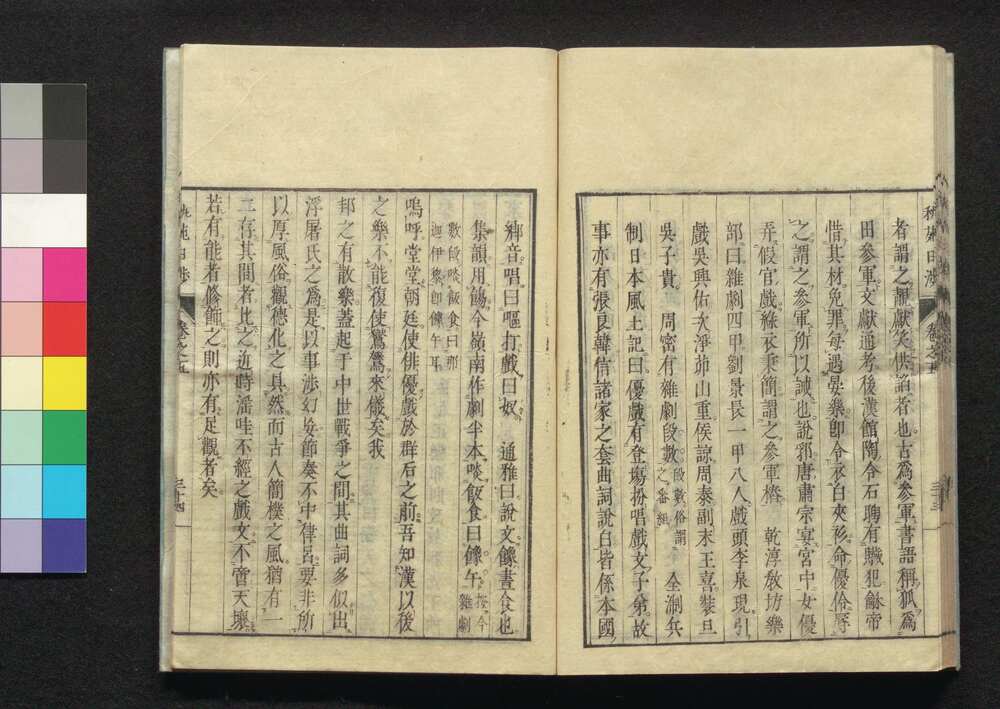 者謂之靚獻笑供諂者也古爲參軍書語稱狐爲
田參軍文獻通考後漢館陶令石聃有贓犯龢帝
惜其材免罪每遇晏樂卽令衣白夾衫命優伶辱
之謂之參軍所以誡也說郛唐肅宗宴宮中女優
弄假官戲綠衣秉簡謂之參軍樁 乾淳敎坊樂
部曰雜劇四甲劉景長一甲八人戲頭李泉現引
戲吳興佑次淨茆山重侯諒周泰副末王喜裝旦
吳子貴 周密有雜劇段數段數俗謂之番組 全淛兵
制日本風土記曰優戲有登場扮唱戲文子弟故
事亦有張良韓信諸家之套曲詞說白皆係本國
卷之五
三十三
鄉音唱曰嘔打戲曰奴 通雅曰說文饟晝食也
集韻用餳今嶺南作劇半本啖飯食曰饟午按今雜劇
數段啖飯食曰那迦伊黎卽饟午耳
嗚呼堂堂朝廷使俳優戲於群后之前吾知漢以後
之樂不能復使鸑鷟來儀矣我
邦之有散樂蓋起于中世戰爭之間其曲詞多似出
浮屠氏之爲是以事涉幻妄節奏不中律呂要非所
以厚風俗觀德化之具然而古人簡樸之風猶有一
二存其間者比之近時滛哇不經之戲文不啻天壤
若有能者修飾之則亦有足觀者矣
卷之五
三十四